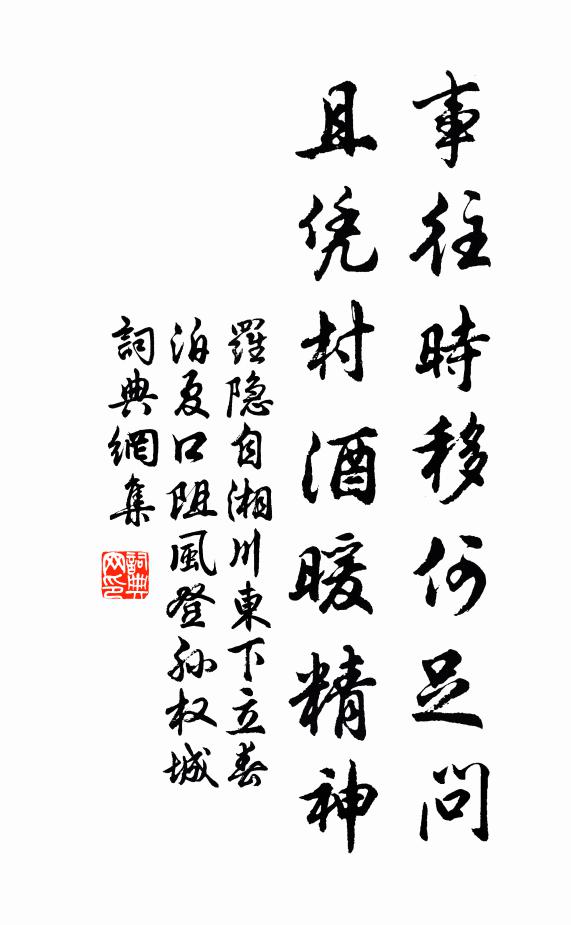 事往時移何足問
且凭村酒暖精神
羅隐自湘川東下立春
泊夏口阻風登孙权城
詞典網集
詞典網印